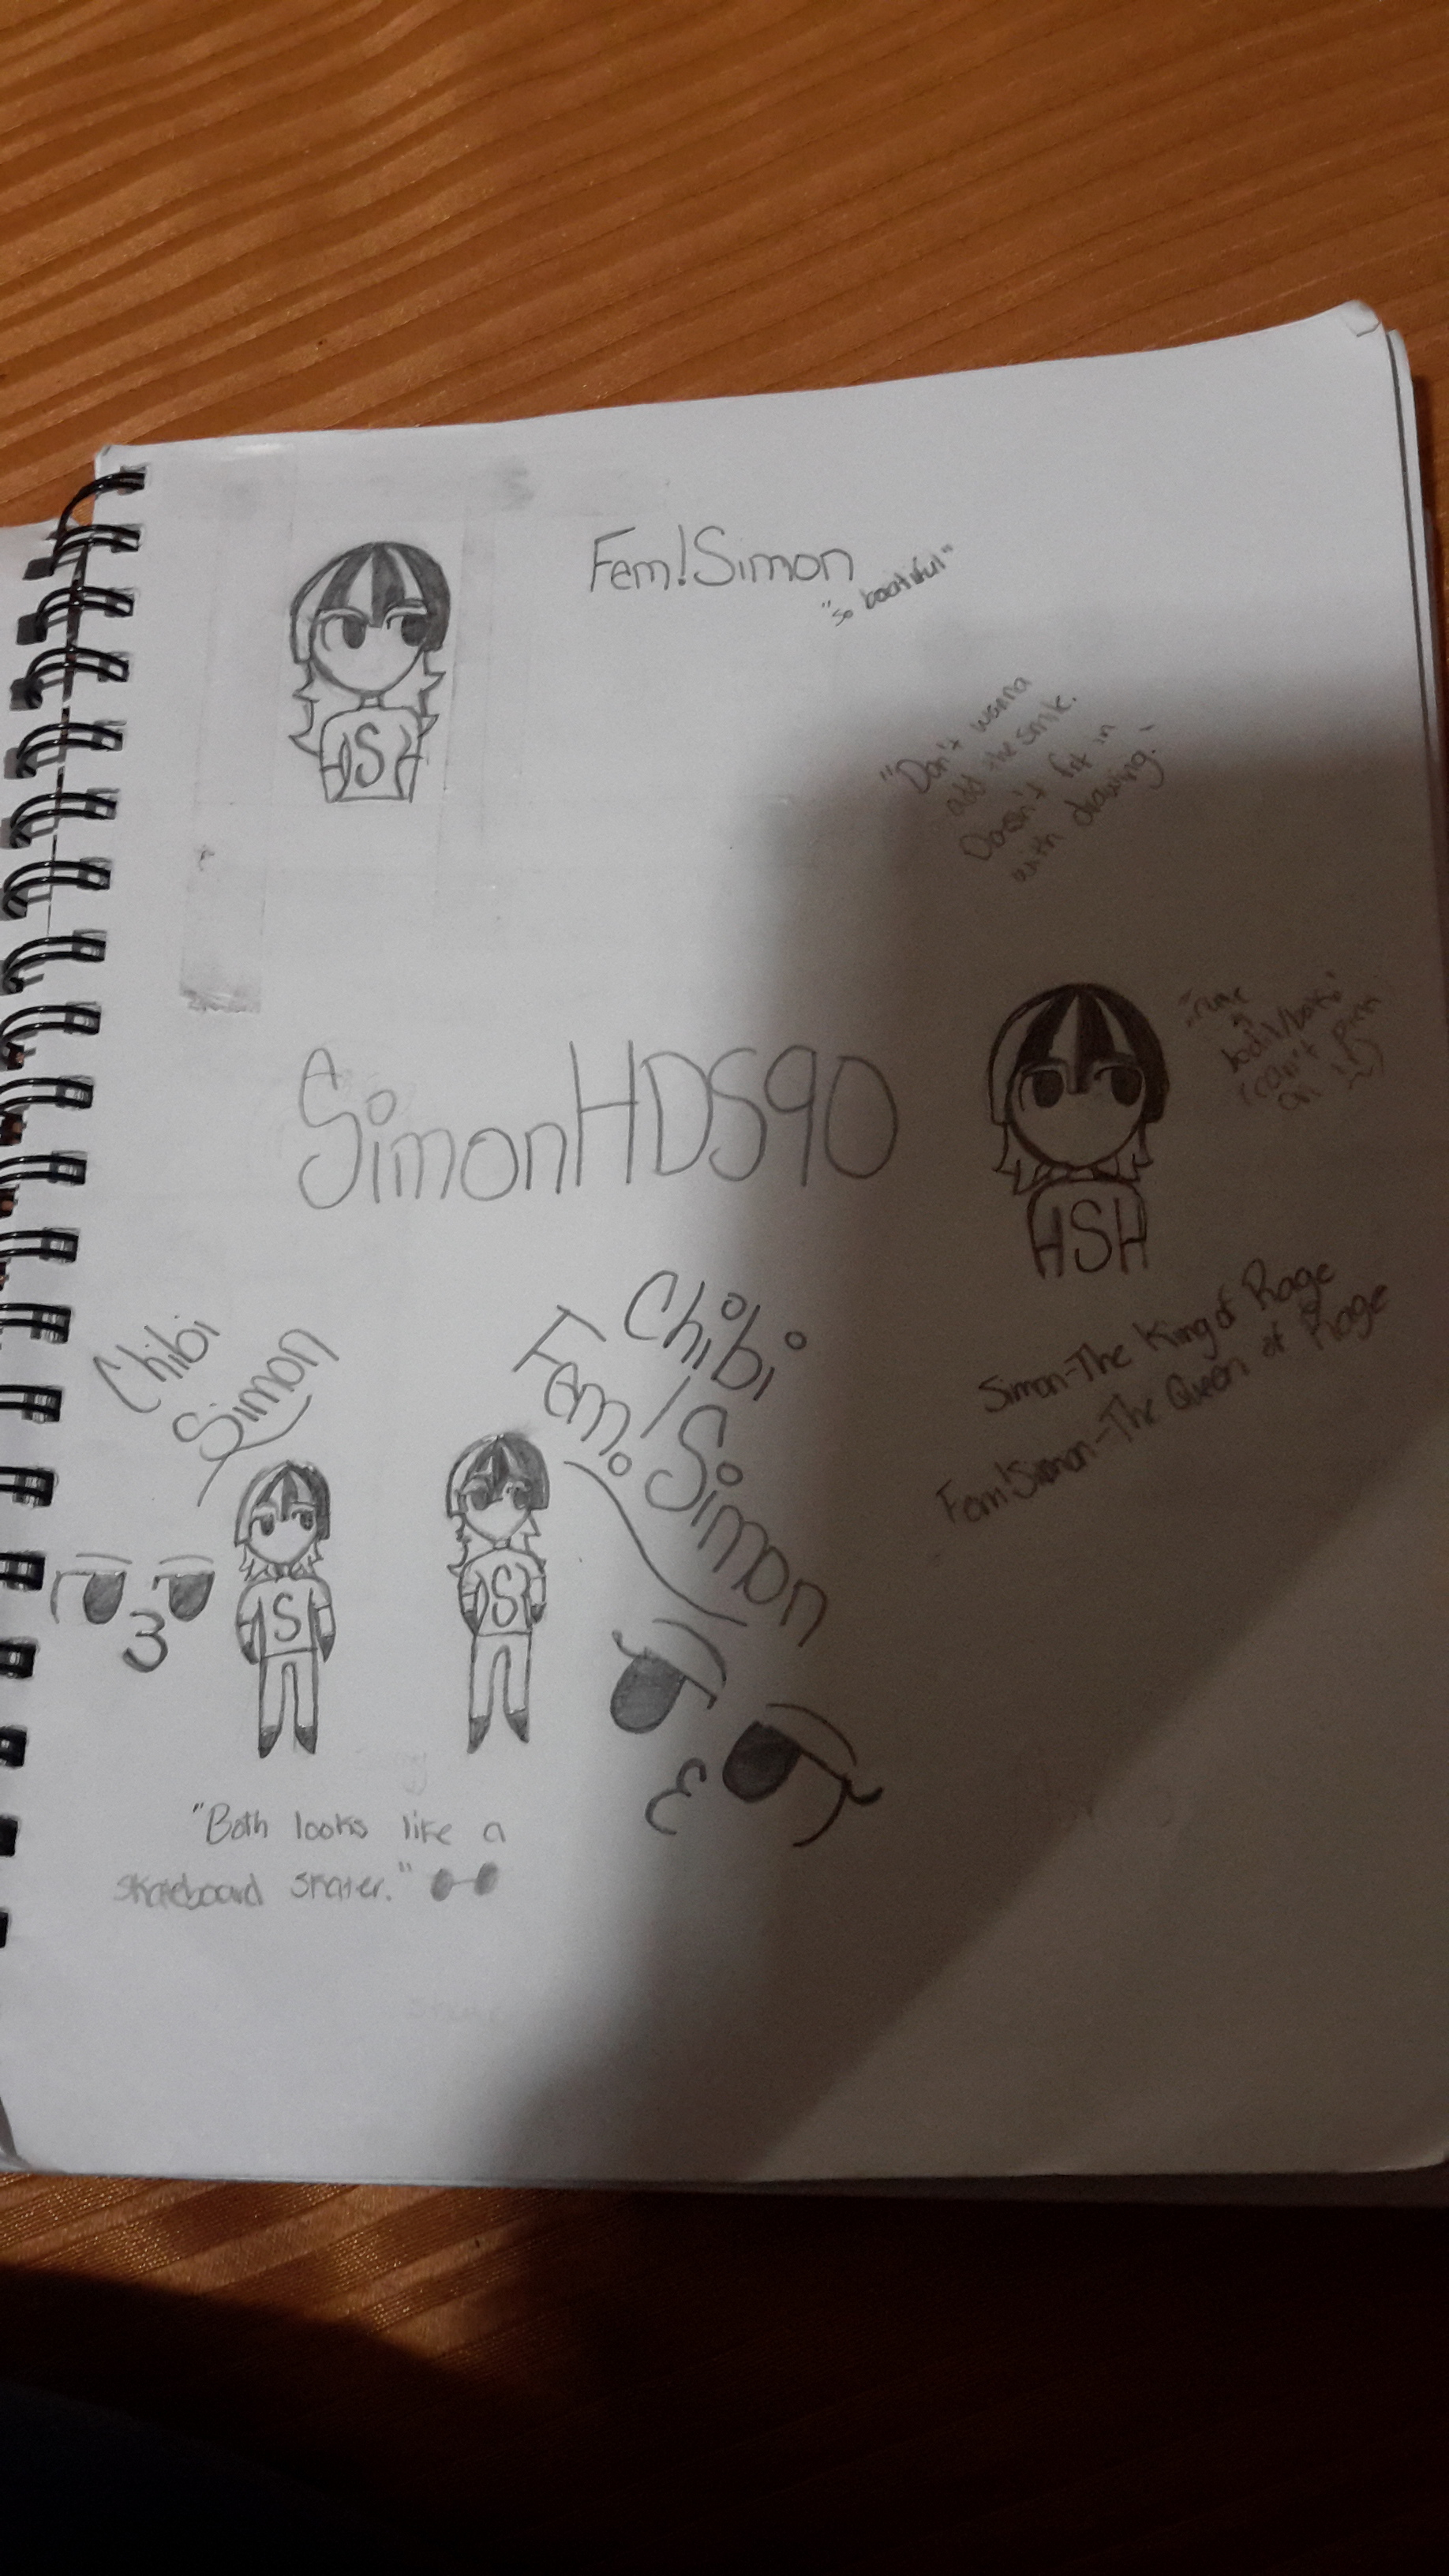 Fem!Simon
"so beatiful"
"Don't wanna
add the smile.
Doesn't fit in
with drawing."
S
SimonHDS90
(can't pick
S
Simon-The King of Rage
Fem!Simon-The Queen of Rage
Chibi
Simon
Chibi
Fem!Simon
S
S
"Both looks like a
skateboard skater."